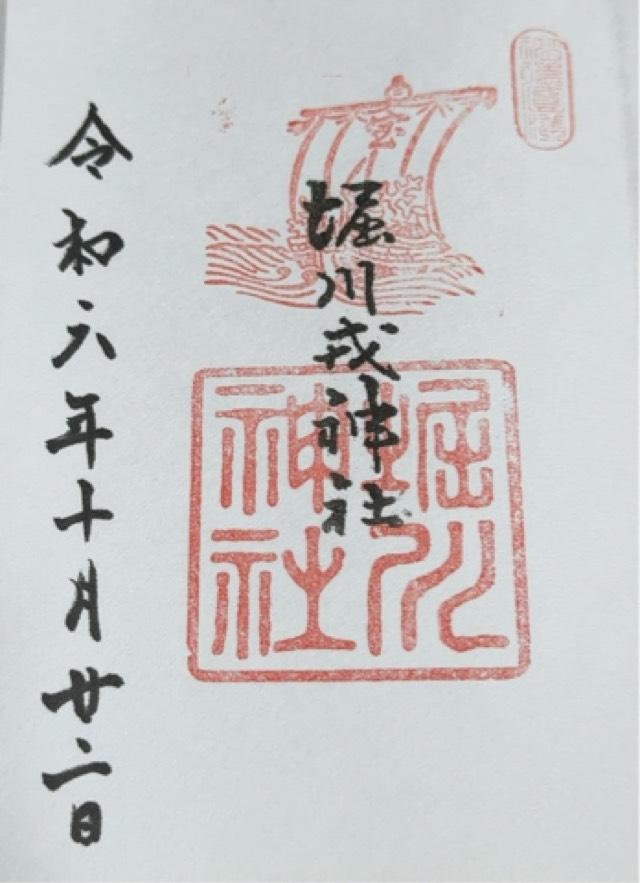 宝
堀川戎神社
堀川
神社
令和六年十月廿二日